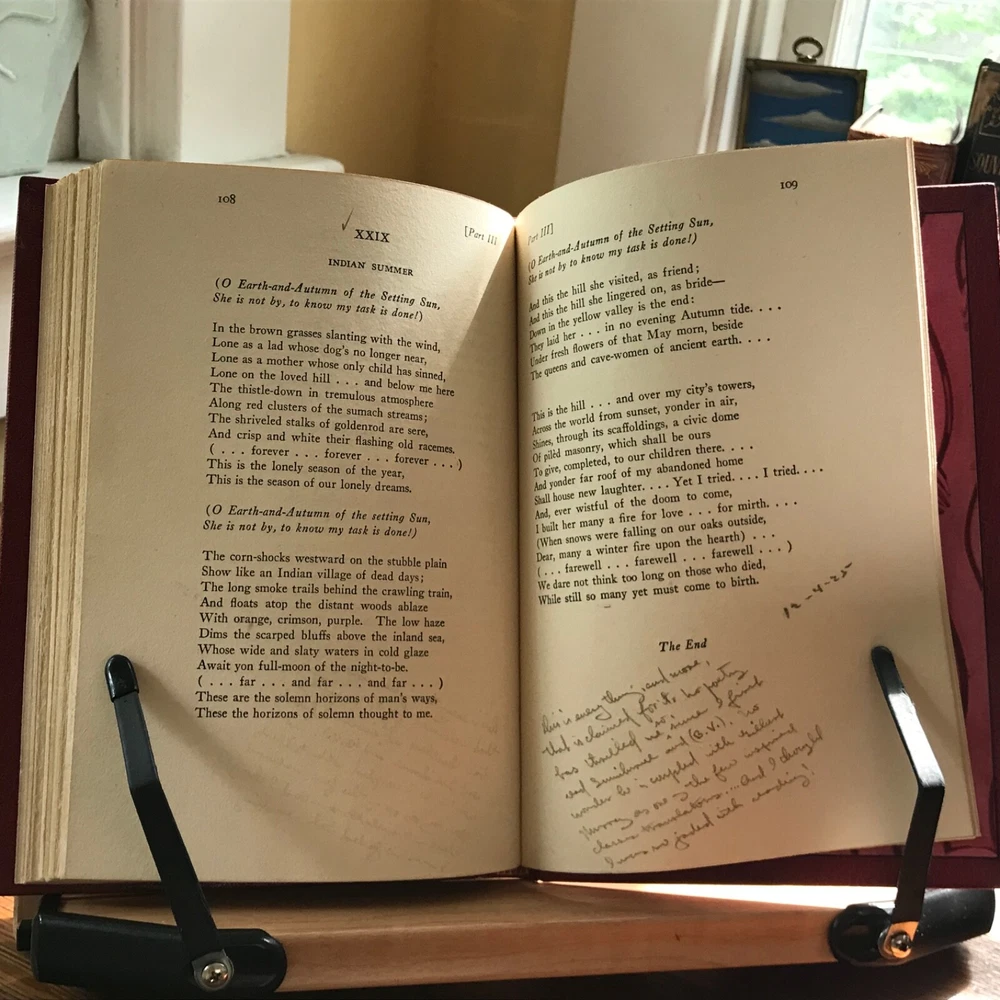 108
XXIX
[Part III
INDIAN SUMMER
(O Earth-and-Autumn of the Setting Sun,
She is not by, to know my task is done!)
In the brown grasses slanting with the wind,
Lone as a lad whose dog's no longer near,
Lone as a mother whose only child has sinned,
Lone on the loved hill . . . and below me here
The thistle-down in tremulous atmosphere
Along red clusters of the sumach streams;
The shriveled stalks of goldenrod are sere,
And crisp and white their flashing old racemes.
( . . . forever . . . forever . . . forever . . . )
This is the lonely season of the year,
This is the season of our lonely dreams.
(O Earth-and-Autumn of the setting Sun,
She is not by, to know my task is done!)
The corn-shocks westward on the stubble plain
Show like an Indian village of dead days;
The long smoke trails behind the crawling train,
And floats atop the distant woods ablaze
With orange, crimson, purple. The low haze
Dims the scarped bluffs above the inland sea,
Whose wide and slaty waters in cold glaze
Await yon full-moon of the night-to-be.
( . . . far . . . and far . . . and far . . . )
These are the solemn horizons of man's ways,
These the horizons of solemn thought to me.
109
Part III]
(O Earth-and-Autumn of the Setting Sun,
She is not by to know my task is done!)
And this the hill she visited, as friend;
And this the hill she lingered on, as bride—
Down in the yellow valley is the end:
They laid her . . . in no evening Autumn tide. . . .
Under fresh flowers of that May morn, beside
The queens and cave-women of ancient earth. . . .
This is the hill . . . and over my city's towers,
Across the world from sunset, yonder in air,
Shines, through its scaffoldings, a civic dome
Of pilèd masonry, which shall be ours
To give, completed, to our children there. . . .
And yonder far roof of my abandoned home
Shall house new laughter. . . . Yet I tried. . . . I tried. . . .
And, ever wistful of the doom to come,
I built her many a fire for love . . . for mirth. . . .
(When snows were falling on our oaks outside,
Dear, many a winter fire upon the hearth) . . .
( . . . farewell . . . farewell . . . farewell . . . )
We dare not think too long on those who died,
While still so many yet must come to birth.
12-4-25-
The End
This is everything, and more,
that is claimed for it. No poetry
has thrilled me so, since I first
read Swinburne and (B.V.). No
wonder he is coupled with Gilbert
Murray as one of the few inspired
classic translators.... And I thought
I was so jaded with reading!